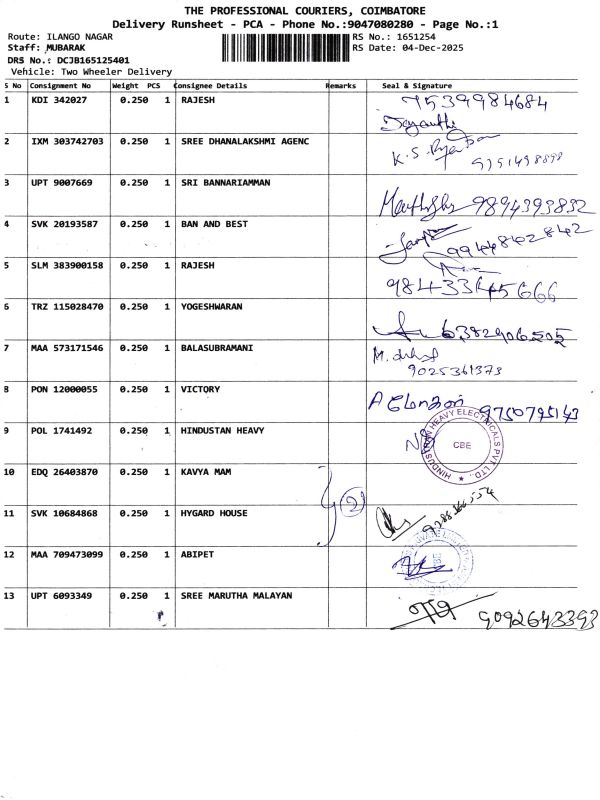 THE PROFESSIONAL COURIERS, COIMBATORE
Delivery Runsheet - PCA - Phone No.:9047080280 - Page No.:1
Route: ILANGO NAGAR RS No.: 1651254
Staff: MUBARAK RS Date: 04-Dec-2025
DRS No.: DCJB165125401
Vehicle: Two Wheeler Delivery
S No Consignment No Weight PCS Consignee Details Remarks Seal & Signature
1 KDI 342027 0.250 1 RAJESH 7539984684
Jayanthi
2 IXM 303742703 0.250 1 SREE DHANALAKSHMI AGENC
K.S. 9751498898
3 UPT 9007669 0.250 1 SRI BANNARIAMMAN
9894393832
4 SVK 20193587 0.250 1 BAN AND BEST
9944842842
5 SLM 383900158 0.250 1 RAJESH
6 TRZ 115028470 0.250 1 YOGESHWARAN
6382906505
7 MAA 573171546 0.250 1 BALASUBRAMANI
M.
9025361373
8 PON 12000055 0.250 1 VICTORY
9750795143
9 POL 1741492 0.250 1 HINDUSTAN HEAVY
HINDUSTHAN HEAVY ELECTRICALS PVT LTD.,
CBE
10 EDQ 26403870 0.250 1 KAVYA MAM
2
11 SVK 10684868 0.250 1 HYGARD HOUSE
12 MAA 709473099 0.250 1 ABIPET
13 UPT 6093349 0.250 1 SREE MARUTHA MALAYAN
9092643393